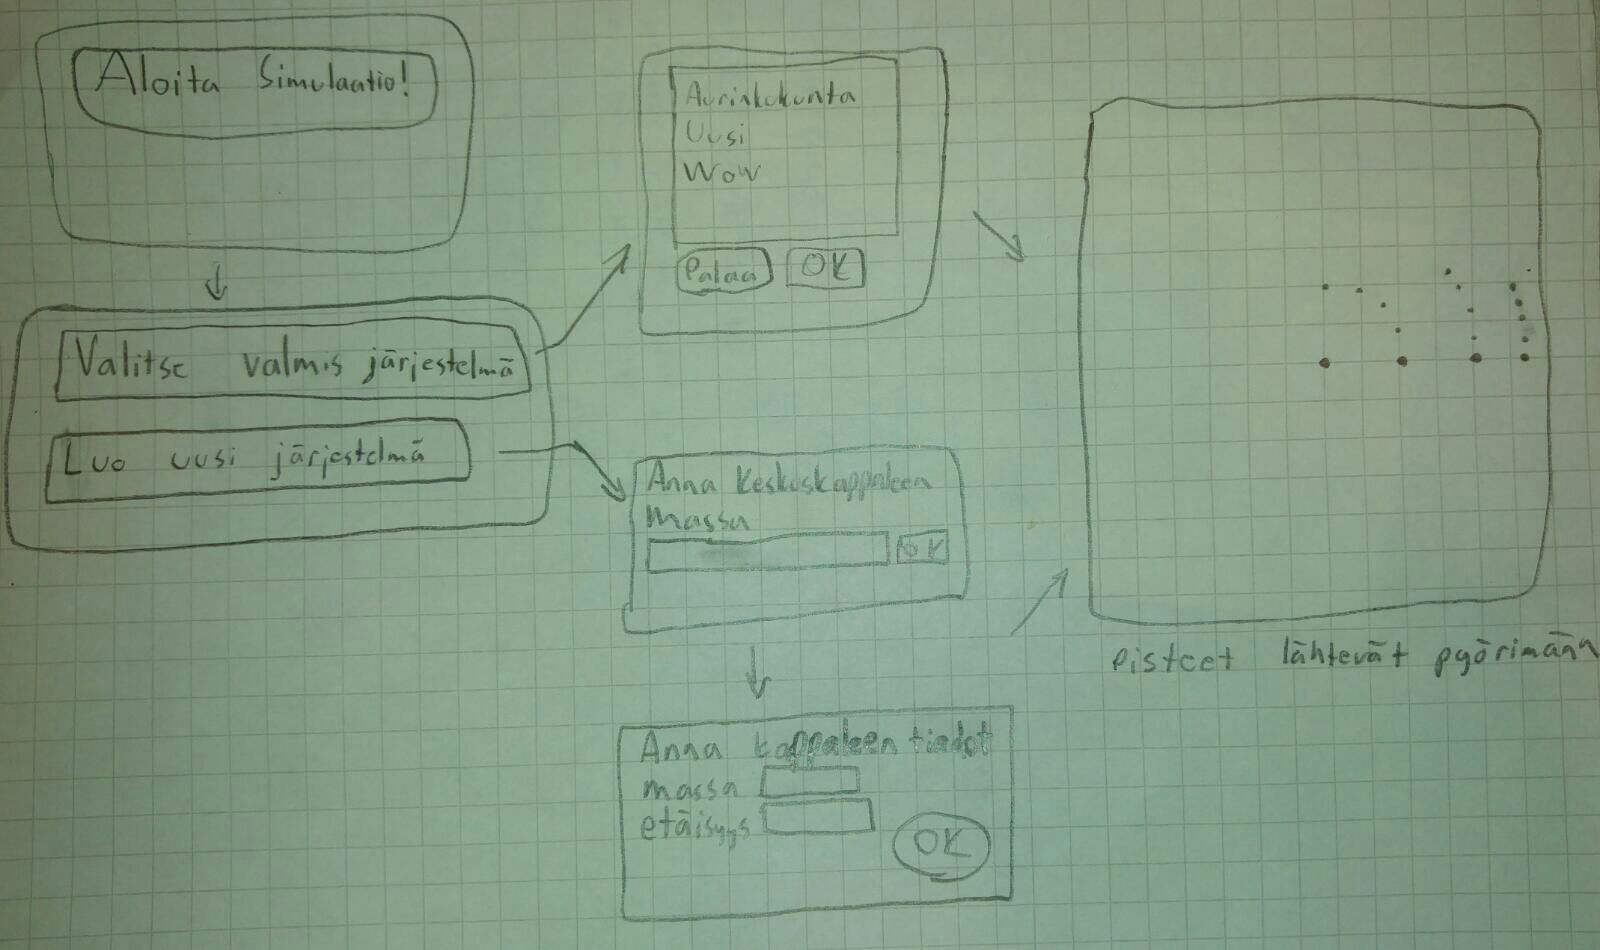 Aloita Simulaatio!
Valitse valmis järjestelmä
Luo uusi järjestelmä
Aurinkokunta
Uusi
Wow
Palaa OK
Anna Keskuskappaleen
Massa
OK
Anna kappaleen tiedot
massa
etäisyys
OK
Pisteet lähtevät pyörimään